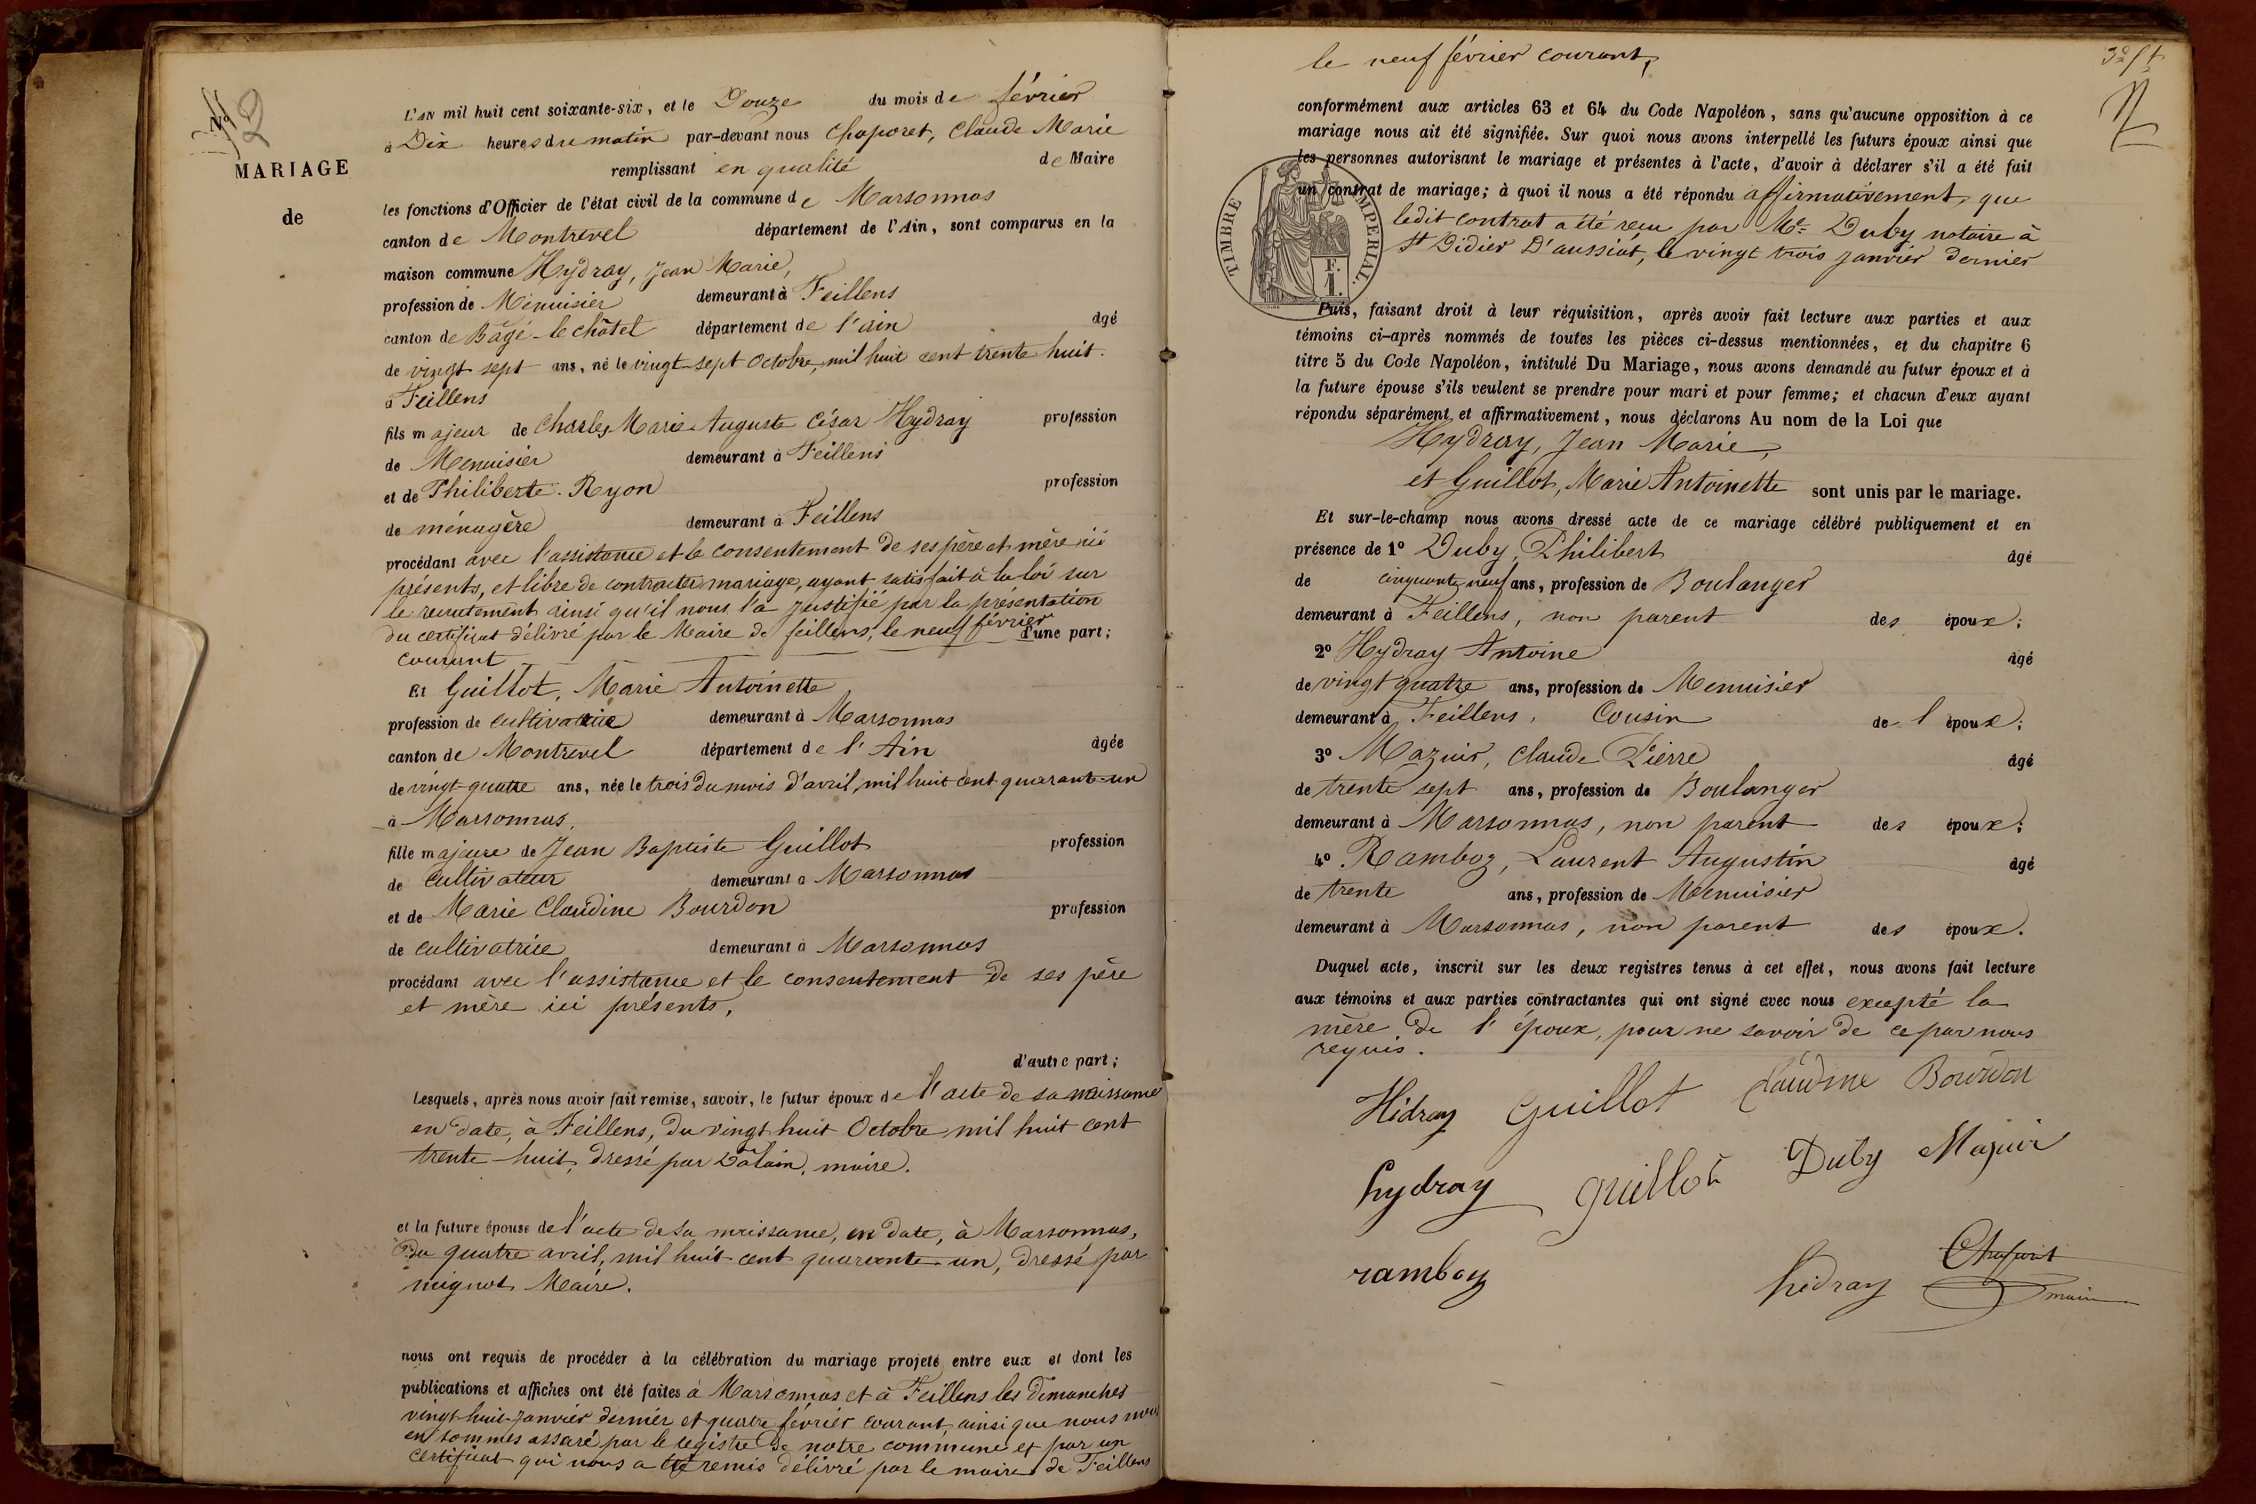 2
MARIAGE
de
L'AN mil huit cent soixante-six, et le Douze du mois de février
à Dix heures du matin par-devant nous Chaporet, Claude Marie
remplissant en qualité de Maire
les fonctions d'Officier de l'état civil de la commune de Marsonnas
canton de Montrevel département de l'Ain, sont comparus en la
maison commune Hydray, Jean Marie,
profession de Menuisier demeurant à Feillens
canton de Bâgé-le châtel département de l'ain âgé
de vingt sept ans, né le vingt-sept Octobre, mil huit cent trente huit.
à Feillens
fils majeur de Charles Marie Auguste César Hydray profession
de Menuisier demeurant à Feillens
et de Philiberte Ryon profession
de ménagère demeurant à Feillens
procédant avec l'assistance et le consentement de ses père et mère ici
présents, et libre de contracter mariage, ayant satisfait à la loi sur
le recrutement ainsi qu'il nous l'a justifié par la présentation
du certificat délivré par le Maire de feillens, le neuf février d'une part;
courant
Et Guillot, Marie Antoinette
profession de cultivatrice demeurant à Marsonnas
canton de Montrevel département de l'Ain âgée
de vingt-quatre ans, née le trois du mois d'avril, mil huit cent quarante-un
à Marsonnas.
fille majeure de Jean Baptiste Guillot profession
de cultivateur demeurant à Marsonnas
et de Marie Claudine Bourdon profession
de cultivatrice demeurant à Marsonnas
procédant avec l'assistance et le consentement de ses père
et mère ici présents,
d'autre part;
Lesquels, après nous avoir fait remise, savoir, le futur époux de l'acte de sa naissance
en date, à Feillens, du vingt huit Octobre mil huit cent
trente-huit, dressé par maire.
et la future épouse de l'acte de sa naissance, en date, à Marsonnas,
Du quatre avril, mil huit cent quarante-un, dressé par
mignot Maire.
nous ont requis de procéder à la célébration du mariage projeté entre eux et dont les
publications et affiches ont été faites à Marsonnas et à Feillens les dimanches
vingt-huit Janvier dernier et quatre février courant, ainsi que nous nous
en sommes assuré par le registre de notre commune et par un
certificat qui nous a été remis délivré par le maire de Feillens
le neuf février courant,
conformément aux articles 63 et 64 du Code Napoléon, sans qu'aucune opposition à ce
mariage nous ait été signifiée. Sur quoi nous avons interpellé les futurs époux ainsi que
les personnes autorisant le mariage et présentes à l'acte, d'avoir à déclarer s'il a été fait
un contrat de mariage; à quoi il nous a été répondu affirmativement, que
ledit contrat a été reçu par Me Duby notaire à
St Didier D'aussiat, le vingt trois janvier dernier
TIMBRE IMPERIAL.
F.
1.
Puis, faisant droit à leur réquisition, après avoir fait lecture aux parties et aux
témoins ci-après nommés de toutes les pièces ci-dessus mentionnées, et du chapitre 6
titre 5 du Code Napoléon, intitulé Du Mariage, nous avons demandé au futur époux et à
la future épouse s'ils veulent se prendre pour mari et pour femme; et chacun d'eux ayant
répondu séparément et affirmativement, nous déclarons Au nom de la Loi que
Hydray, Jean Marie,
et Guillot, Marie Antoinette sont unis par le mariage.
Et sur-le-champ nous avons dressé acte de ce mariage célébré publiquement et en
présence de 1º Duby, Philibert âgé
de cinquante neuf ans, profession de Boulanger
demeurant à Feillens, non parent des époux;
2º Hydray Antoine âgé
de vingt quatre ans, profession de Menuisier
demeurant à Feillens, Cousin de l'époux;
3º Mazuir, Claude Pierre âgé
de trente sept ans, profession de Boulanger
demeurant à Marsonnas, non parent des époux;
4º Ramboz, Laurent Augustin âgé
de trente ans, profession de Menuisier
demeurant à Marsonnas, non parent des époux.
Duquel acte, inscrit sur les deux registres tenus à cet effet, nous avons fait lecture
aux témoins et aux parties contractantes qui ont signé avec nous excepté la
mère de l'époux, pour ne savoir de ce par nous
requis.
Hidray Guillot Claudine Bourdon
hydray guillot Duby Mazuir
ramboz hidray Chaporet
maire